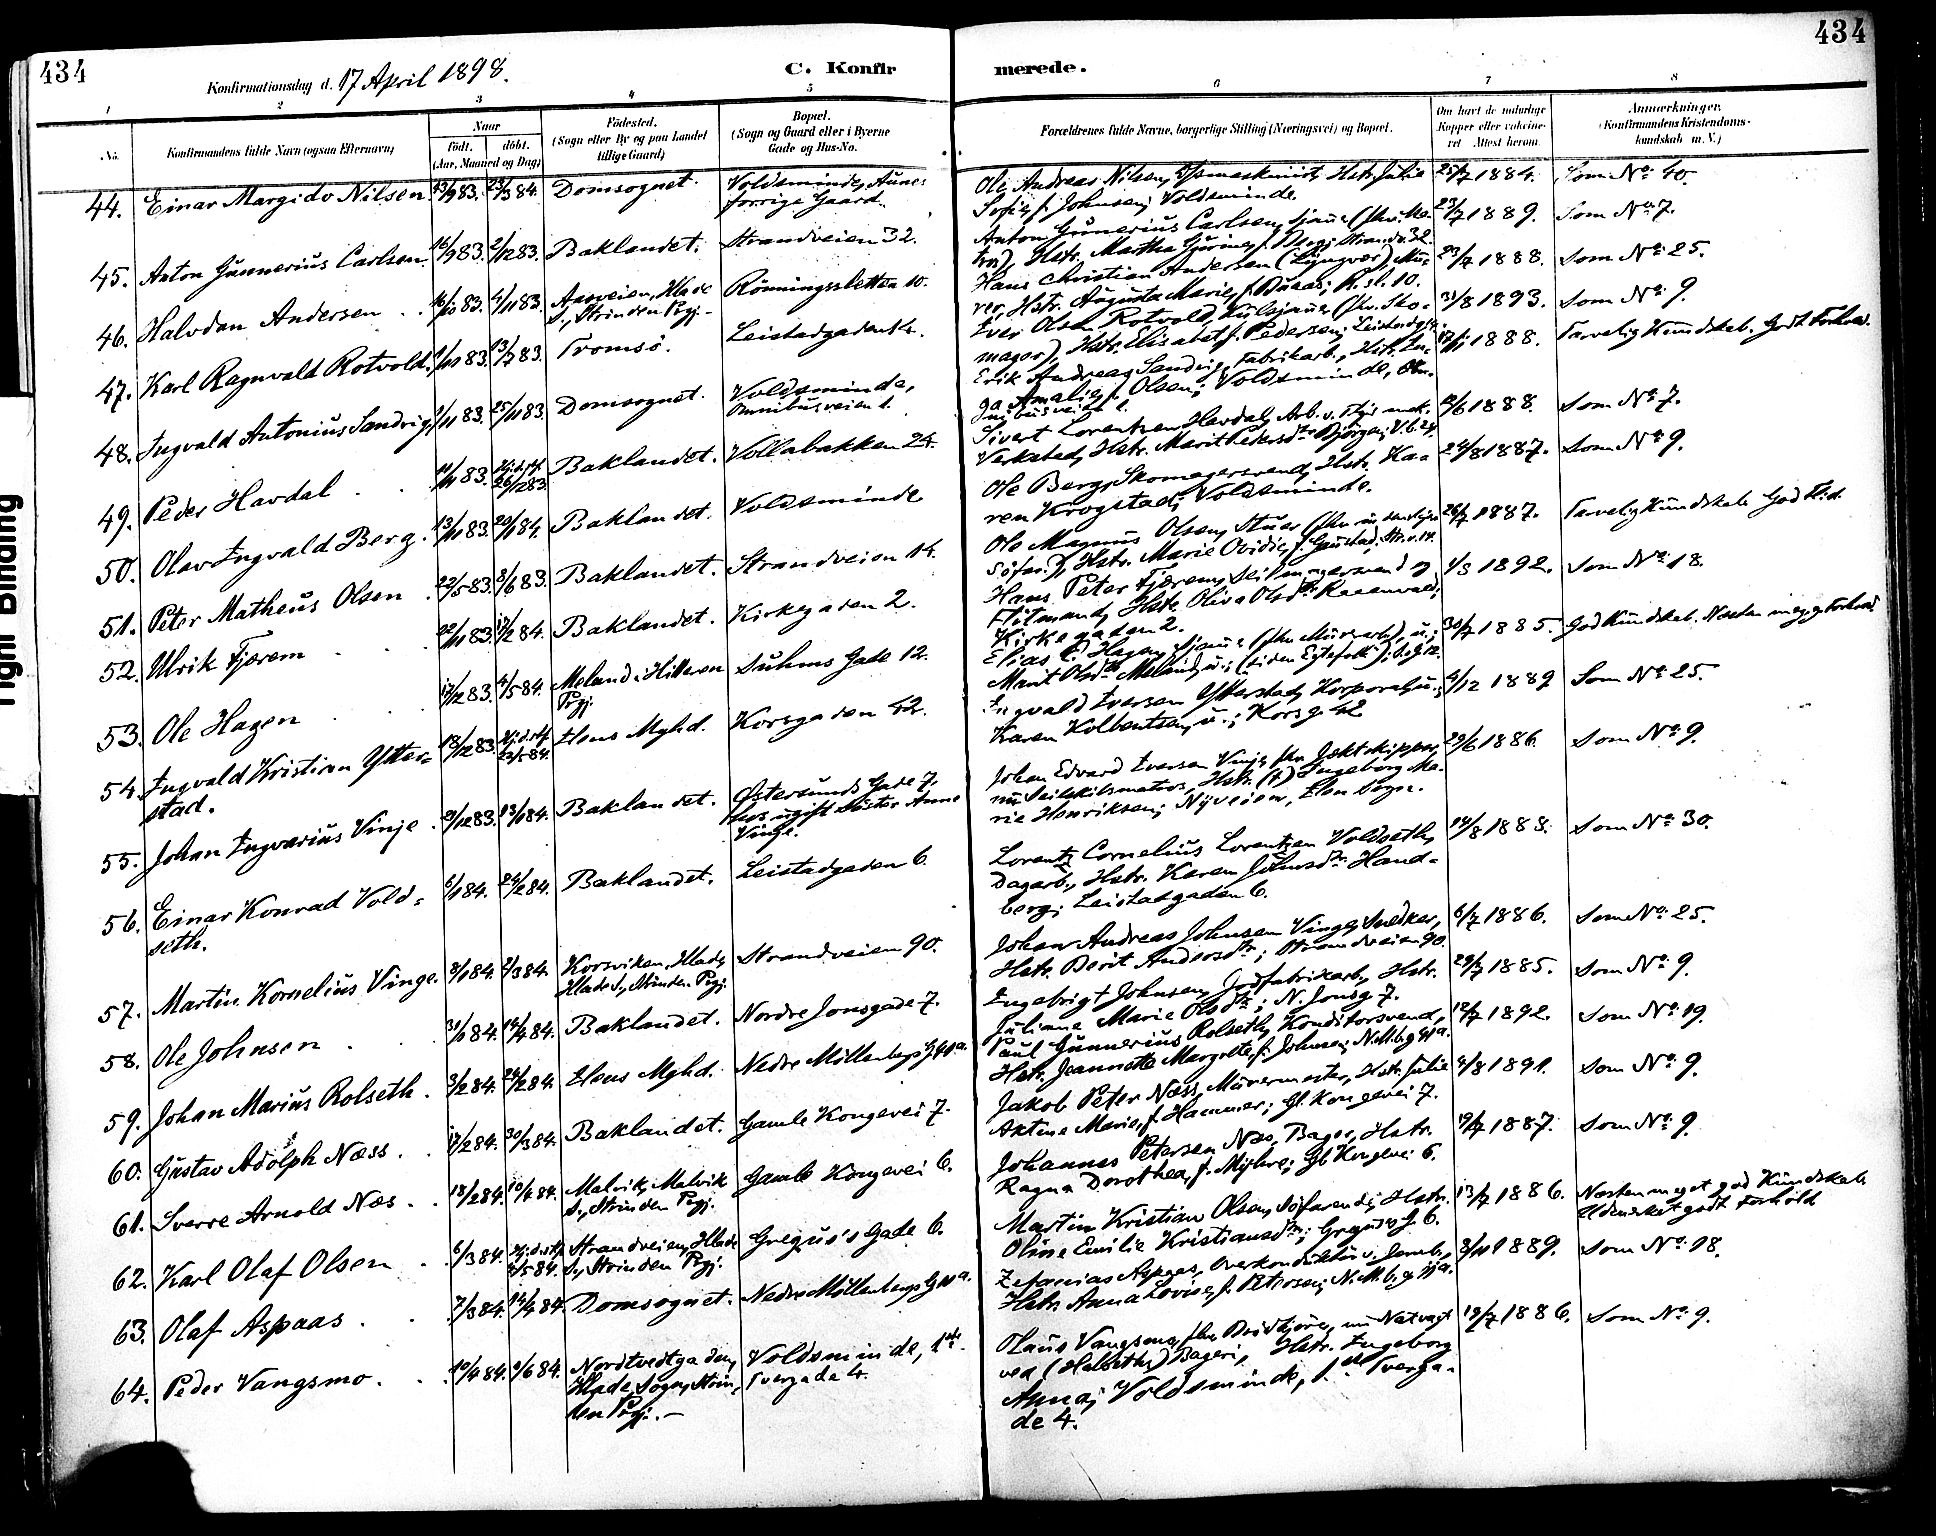 434
Konfirmationsdag d. 17 April 1898.
C. Konfir
merede.
434
1
2
3
4
5
6
7
8
No.
Konfirmandens fulde Navn (ogsaa Efternavn)
Naar
født. døbt.
(Aar, Maaned og Dag)
Fødested.
(Sogn eller By og paa Landet
tillige Gaard)
Bopæl.
(Sogn og Gaard eller i Byerne
Gade og Hus-No.
Forældrenes fulde Navne, borgerlige Stilling (Næringsvei) og Bopæl.
Om havt de naturlige
Kopper eller vaksine-
ret Attest herom.
Anmærkninger.
(Konfirmandens Kristendoms-
kundskab m. V.)
44. Einar Margido Nilsen 13/9 83. 23/3 84. Domsognet. Voldsminde, Aunes
forrige Gaard.
Ole Andreas Nilsen, Hstr. Julie
Sofie, f. Johnsen; Voldsminde.
25/7 1884. Som No. 40.
45. Anton Gunnerius Carlsen. 16/9 83. 2/12 83. Baklandet. Strandveien 32.
Anton Gunnerius Carlsen, Sjauer
Hstr. Martha
23/7 1889. Som No. 7.
46. Halvdan Andersen 16/10 83. 4/11 83. Hlade
S., Strinden Prgj. Rönningsletten 10.
Hans Christian Andersen (Lyngvær), Mu-
rer, Hstr. Augusta Marie, f. R. sl. 10.
23/7 1888. Som No. 25.
47. Karl Ragnvald Rotvold. 1/10 83. 13/7 83. Tromsö. Leistadgaden
Iver Olsen Rotvold,
mager), Hstr. Elisabet f. Pedersen; Leistadg.
31/8 1893. Som No. 9.
48. Ingvald Antonius Sandvig. 1/11 83. 25/11 83. Domsognet. Voldsminde,
Omnibusveien 1.
Erik Andreas Sandvig, Fabrikarb., Hstr. In-
ga Amalie f. Olsen; Voldsminde, Om-
nibusveien 1.
17/11 1888. Tarvelig Kundskab. Godt Forhold.
49. Peder Havdal 11/11 83. Hj.d. stf.
26/12 83. Baklandet. Vollabakken 24.
Sivert Lorentzen Havdal, Arb. v.
Verksted, Hstr. Marit Pedersdtr. V.b. 24.
12/6 1888. Som No. 7.
50. Olav Ingvald Berg. 13/11 83. 20/1 84. Baklandet. Voldsminde
Ole Berg, Skomagersvend, Hstr. Kaa-
ren Krogstad; Voldsminde.
24/8 1887. Som No. 9.
51. Peter Matheus Olsen 22/5 83. 3/6 83. Baklandet. Strandveien 14.
Ole Magnus Olsen, Stuer
Söfar.), Hstr. Marie Ovidie f. Gaustad; Str.v. 14.
26/7 1887. Tarvelig Kundskab God
52. Ulrik Fjærem 22/11 83. 17/2 84. Baklandet. Kirkegaden 2.
Hans Peter Fjærem, Seilmagersvend og
Hstr. Oliva Olsdtr.
Kirkegaden 2.
1/3 1892. Som No. 18.
53. Ole Hagen 17/12 83. 4/5 84. Meland i Hitteren
Prgj. Suhms Gade 12.
Elias E. Hagen, Sjauer
Marit Olsdtr. Meland, u.; (siden Egtefolk);
30/7 1885. God Kundskab. Næsten meget Forhold
54. Ingvald Kristian Ytter-
stad. 18/12 83. Hj.d. stf.
23/5 84. Elens Mghd. Korsgaden 42.
Ingvald Iversen Ytterstad, Korporal, u.;
Karen Kolbentsen, u.; Korsg. 42
9/12 1889 Som No. 25.
55. Johan Ingvarius Vinje 9/12 83. 13/1 84. Baklandet. Østersunds Gade 7,
hos ugift Søster Anne
Vinge.
Johan Edvard Iversen Vinje, fhv. Jektskipper,
nu Seilskibsmatros, Hstr. (†) Ingeborg Ma-
rie Henriksen; Nyveien, Elen Sogn.
29/6 1886. Som No. 9.
56. Einar Konrad Vold-
seth. 6/1 84. 24/2 84. Baklandet. Leistadgaden 6
Lorentz Cornelius Lorentzen Voldseth,
Dagarb., Hstr. Karen Johnsdtr. Hand-
berg; Leistadgaden 6.
14/8 1888. Som No. 30.
57. Martin Kornelius Vinge. 9/1 84. 2/3 84. Korsviken, Hlade,
Hlade S., Strinden Prgj. Strandveien 90.
Johan Andreas Johnsen Vinge, Snedker,
Hstr. Berit Andersdtr.; Strandveien 90.
6/7 1886. Som No. 25.
58. Ole Johnsen 31/1 84. 14/4 84. Baklandet. Nordre Jonsgade 7.
Ingebrigt Johnsen, Jodfabrikarb., Hstr.
Juliane Marie Olsdtr.; N. Jonsg. 7.
29/7 1885. Som No. 9.
59. Johan Marius Rolseth. 3/2 84. 24/2 84. Elens Mghd. Nedre Möllenbergs G. 41a.
Paul Gunnerius Rolseth, Konditorsvend,
Hstr. Jeannette Margrete, f. Johnsen; N.M.b.g. 41a.
12/7 1892. Som No. 19.
60. Gustav Adolph Næss. 17/2 84. 30/3 84. Baklandet. Gamle Kongevei 7.
Jakob Peter Næss, Murermester, Hstr. Julie
Aktine Marie, f. Hammer; Gl. Kongevei 7.
4/8 1891. Som No. 9.
61. Sverre Arnold Næs. 18/2 84. 10/4 84. Malvik, Malvik
S., Strinden Prgj. Gamle Kongevei 6.
Johannes Petersen Næs, Bager, Hstr.
Ragna Dorothea, f. Myhre; Gl. Kongevei 6.
19/7 1887. Som No. 9.
62. Karl Olaf Olsen 6/3 84. Hj.d. stf.
5/5 84. Strandveien, Hlade
S., Strinden Prgj. Gregus's Gade 6.
Martin Kristian Olsen, Söfarende, Hstr.
Oline Emilie Kristiansdtr.; Gregus's G. 6.
13/7 1886. Næsten meget god Kundskab.
Udmerket godt Forhold
63. Olaf Aspaas 7/3 84. 14/4 84. Domsognet. Nedre Möllenbergs G. 11a.
Zefanias Aspaas, Overkonduktör v. Jernb.,
Hstr. Anna Lovise, f. Petersen; N.M.b.g. 11a.
3/11 1889. Som No. 18.
64. Peder Vangsmo. 10/4 84. 2/6 84. Nordtvedtgaden,
Hlade Sogn, Strin-
den Prgj. Voldsminde, 1ste
Tvergade 4.
Olaus Vangsmo, fhv. nu Natvagt
ved Bageri, Hstr. Ingeborg
Anna; Voldsminde, 1ste Tverga-
de 4.
19/7 1886. Som No. 9.
Tight Binding